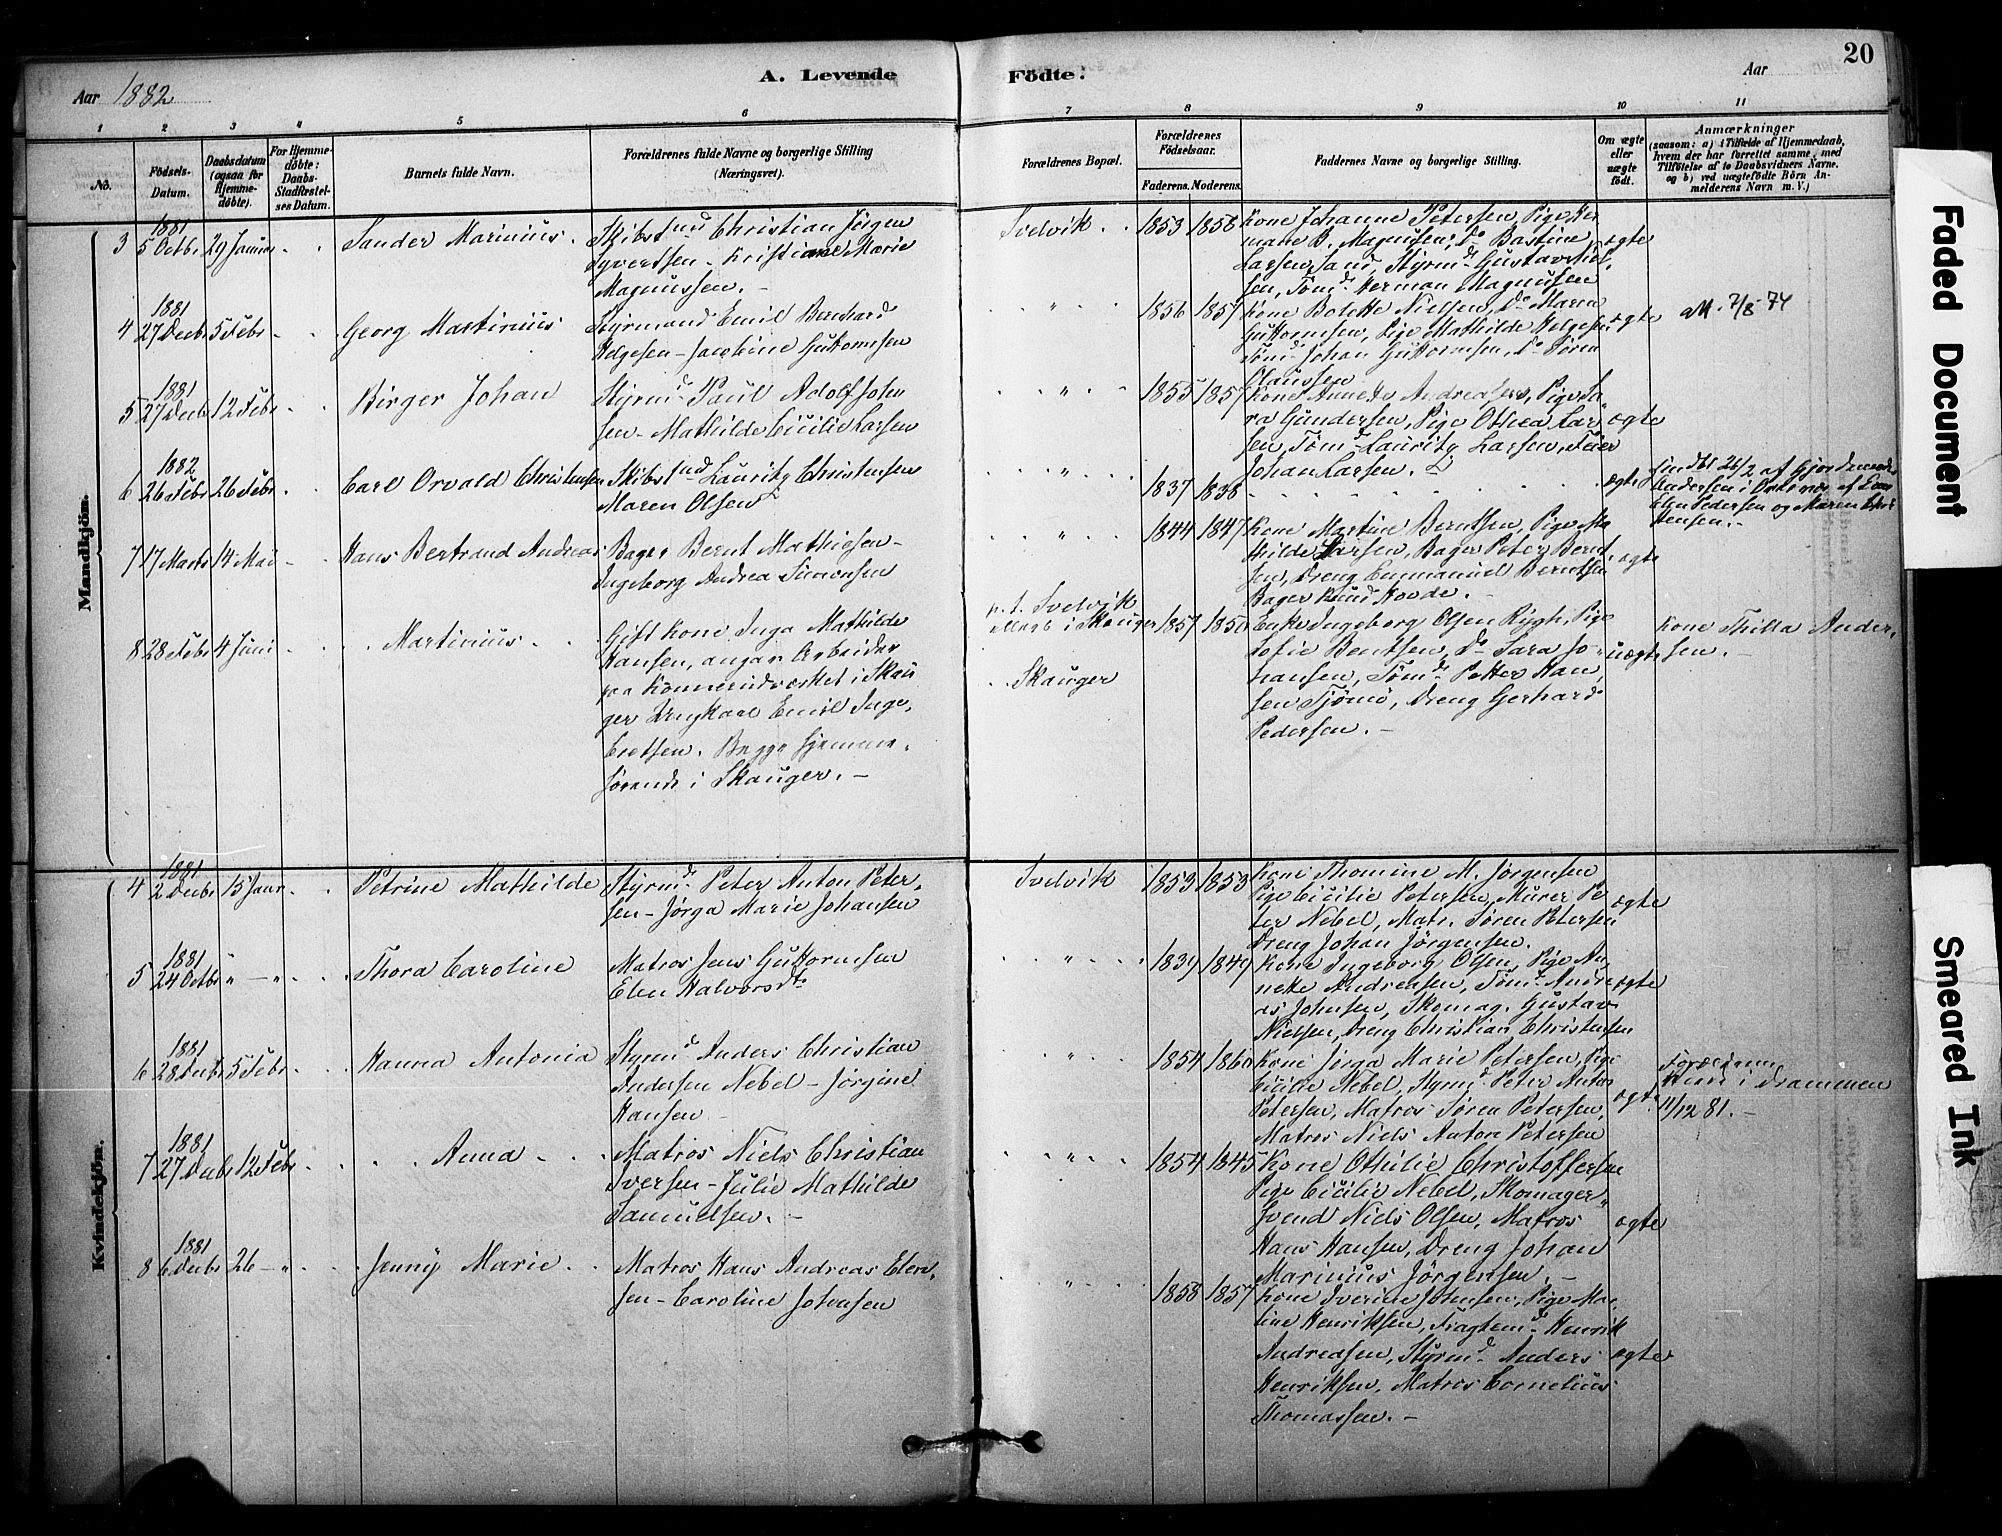 20
A. Levende Födte.
Aar 1882
Aar
1 2 3 4 5 6 7 8 9 10 11
No.
Födsels-Datum.
Daabsdatum (ogsaa for Hjemmedöbte).
For Hjemmedöbte: Daabs-Stadfæstelses Datum.
Barnets fulde Navn.
Forældrenes fulde Navne og borgerlige Stilling (Næringsvei).
Forældrenes Bopæl.
Forældrenes Födselsaar.
Faderens. Moderens.
Faddernes Navne og borgerlige Stilling.
Om ægte eller uægte födt.
Anmærkninger
(saasom: a) i Tilfælde af Hjemmedaab, hvem der har forrettet samme, med Tilföielse af to Daabsvidners Navne. og b) ved uægtefödte Börn Anmelderens Navn m. V.)
Mandkjön.
3 1881 5 Octbr 29 Januar
Sander Marinius.
Skibst Christian Jörgen
Syvertsen - Kristiane Marie
Magnussen. -
Svelvik
1853 1856
Kone Johanne Petersen, Pige Her
mane B. Magnusen, Do Bastine
Larsen Sand, Styrmd Gustav
sen, Tömd Herman Magnusen
ægte
4 1881 27 Decbr 5 Febr
Georg Martinius
Styrmand Emil Bernhard
Helgesen - Jacobine Guttormsen
"
1856 1857
Kone Bolette Nielsen, Do Maren
Guttormsen, Pige Mathilde Helgesen
Tömd Johan Guttormsen, Do Sören
Claussen
ægte
M. 7/8 - 74
5 1881 27 Decbr 12 Febr
Birger Johan
Styrmd Paul Adolf Johan
sen - Mathilde Cicilie Larsen
"
1855 1857
Kone Annette Andreasen, Pige Sa
ra Gundersen, Pige Othea Lar
sen, Tömd Lauritz Larsen,
Johan Larsen.
ægte
6 1882 26 Febr 26 Febr
Carl Orvald Christensen
Skibst Lauritz Christensen
Maren Olsen
"
1837 1838
ægte
26/2 af Gjordemoder
Andersen i
Elen Pedersen og Maren Chris
tensen. -
7 17 Marts 14 Mai
Hans Bertrand Andreas
Bager Bernt Mathiesen -
Ingeborg Andrea Simonsen
"
1844 1847
Kone Martine Berntsen, Pige Ma
thilde Larsen, Bager Peter Bernt
sen, Dreng Emmanuel Berntsen
Bager Knud Hovde. -
ægte
8 28 Febr 4 Juni
Martinius
Gift Kone Inga Mathilde
Hansen, angav Arbeider
paa i Skau
ger Ungkarl Emil Inge
bretsen. Begge hjemme
hörende i Skauger. -
p. t. Svelvik
i Skauger
Skauger
1857 1850
Enke Ingeborg Olsen Rygh, Pige
Sofie Bentsen, Do Sara Jo
hansen, Tömd Petter Han
sen Tjömö, Dreng Gerhard
Pedersen. -
uægte
Kone Thilla Ander,
sen. -
Kvindekjön.
4 1881 2 Decbr 15 Janr
Petrine Mathilde
Styrmd Peter Anton Peter,
sen - Jörga Marie Johansen
Svelvik
1853 1853
Kone Thomine M. Jörgensen
Pige Cicilie Petersen, Murer Pe
ter Nebel, Matr. Sören Petersen
Dreng Johan Jörgensen.
ægte
5 1881 24 Octbr " - "
Thora Caroline
Matros Jens Guttormsen
Elen Halvorsdtr
"
1839 1849
Kone Ingeborg Olsen, Pige An
nette Andreasen, Tömd Andre
as Johnsen, Skomag. Gustav
Nielsen, Dreng Christian Christensen
ægte
6 1881 28 Decbr 5 Febr
Hanna Antonia
Styrmd Anders Christian
Andersen Nebel - Jörgine
Hansen -
"
1854 1860
Kone Jörga Marie Petersen, Pige
Cicilie Nebel, Styrmd Peter Anton
Petersen, Matros Sören Petersen,
Matros Niels Anton Petersen
ægte
Forældrene
viede i Drammen
11/12 81. -
7 1881 27 Decbr 12 Febr
Anna
Matros Niels Christian
Iversen - Julie Mathilde
Samuelsen. -
"
1854 1845
Kone Othilie Christoffersen
Pige Cicilie Nebel, Skomager
svend Niels Olsen, Matros
Hans Hansen, Dreng Johan
Marinius Jörgensen. -
ægte
8 1881 6 Decbr 26 - "
Jenny Marie
Matros Hans Andreas Elen,
sen - Caroline Johnsen
"
1858 1857
Kone Iverine Johnsen, Pige Mar
tine Henriksen, Fragtemd Henrik
Andreasen, Styrmd Anders
Henriksen, Matros Cornelius
Thomassen. -
ægte
Faded Document
Smeared Ink